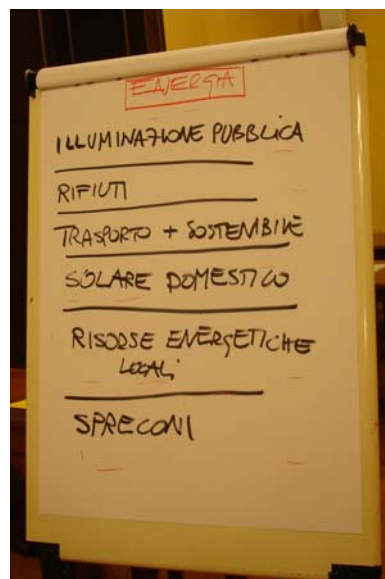 ENERGIA
ILLUMINAZIONE PUBBLICA
RIFIUTI
TRASPORTO + SOSTENIBILE
SOLARE DOMESTICO
RISORSE ENERGETICHE
LOCALI
SPRECONI